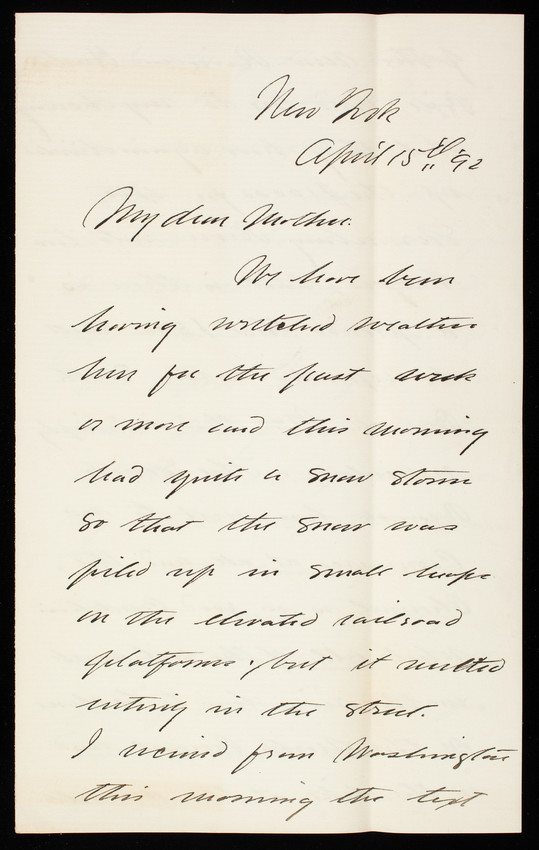 New York
April 15th '92
My dear Mother.
We have been
having wretched weather
here for the past week
or more and this morning
had quite a snow storm
so that the snow was
piled up in small heaps
on the elevated railroad
platforms, but it melted
entirely in the street.
I received from Washington
this morning the text